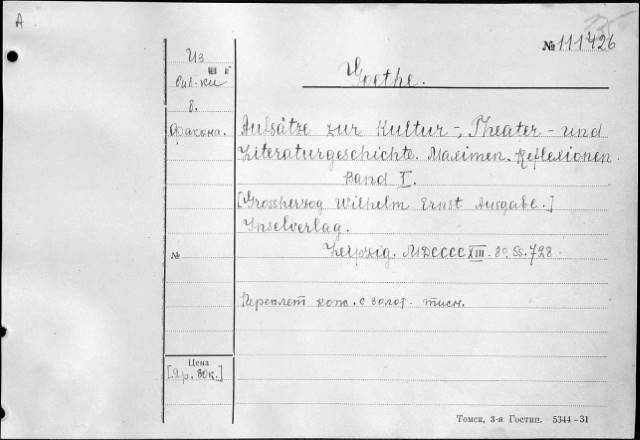 A
№ 111426
Из
биб-ки
в.
Фракона.
Goethe.
Aufsätze zur Kultur-, Theater- und
Literaturgeschichte. Maximen. Reflexionen.
Band I.
[Grossherzog Wilhelm Ernst Ausgabe.]
Inselverlag.
Leipzig. MDCCCCXIII. 8o. Ss. 728.
№
Переплет кож. с золот. тисн.
Цена
[др. 80к.]
Томск, 3-я Гостип. 5344-31